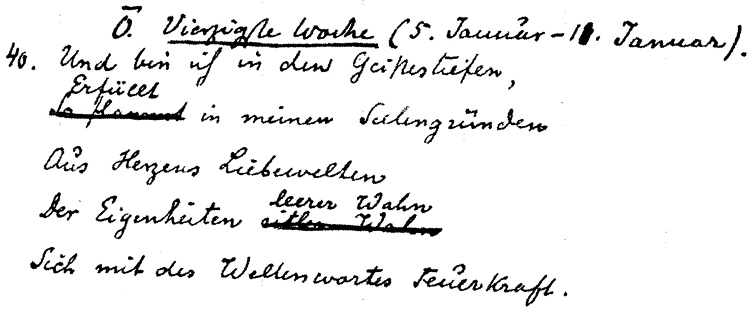 Ō. Vierzigste Woche (5. Januar – 11. Januar).
40. Und bin ich in den Geistestiefen,
Erfüllt
So flammt in meinen Seelengründen
Aus Herzens Liebewelten
leerer Wahn
Der Eigenheiten eitler Wahn
Sich mit des Weltenwortes Feuerkraft.